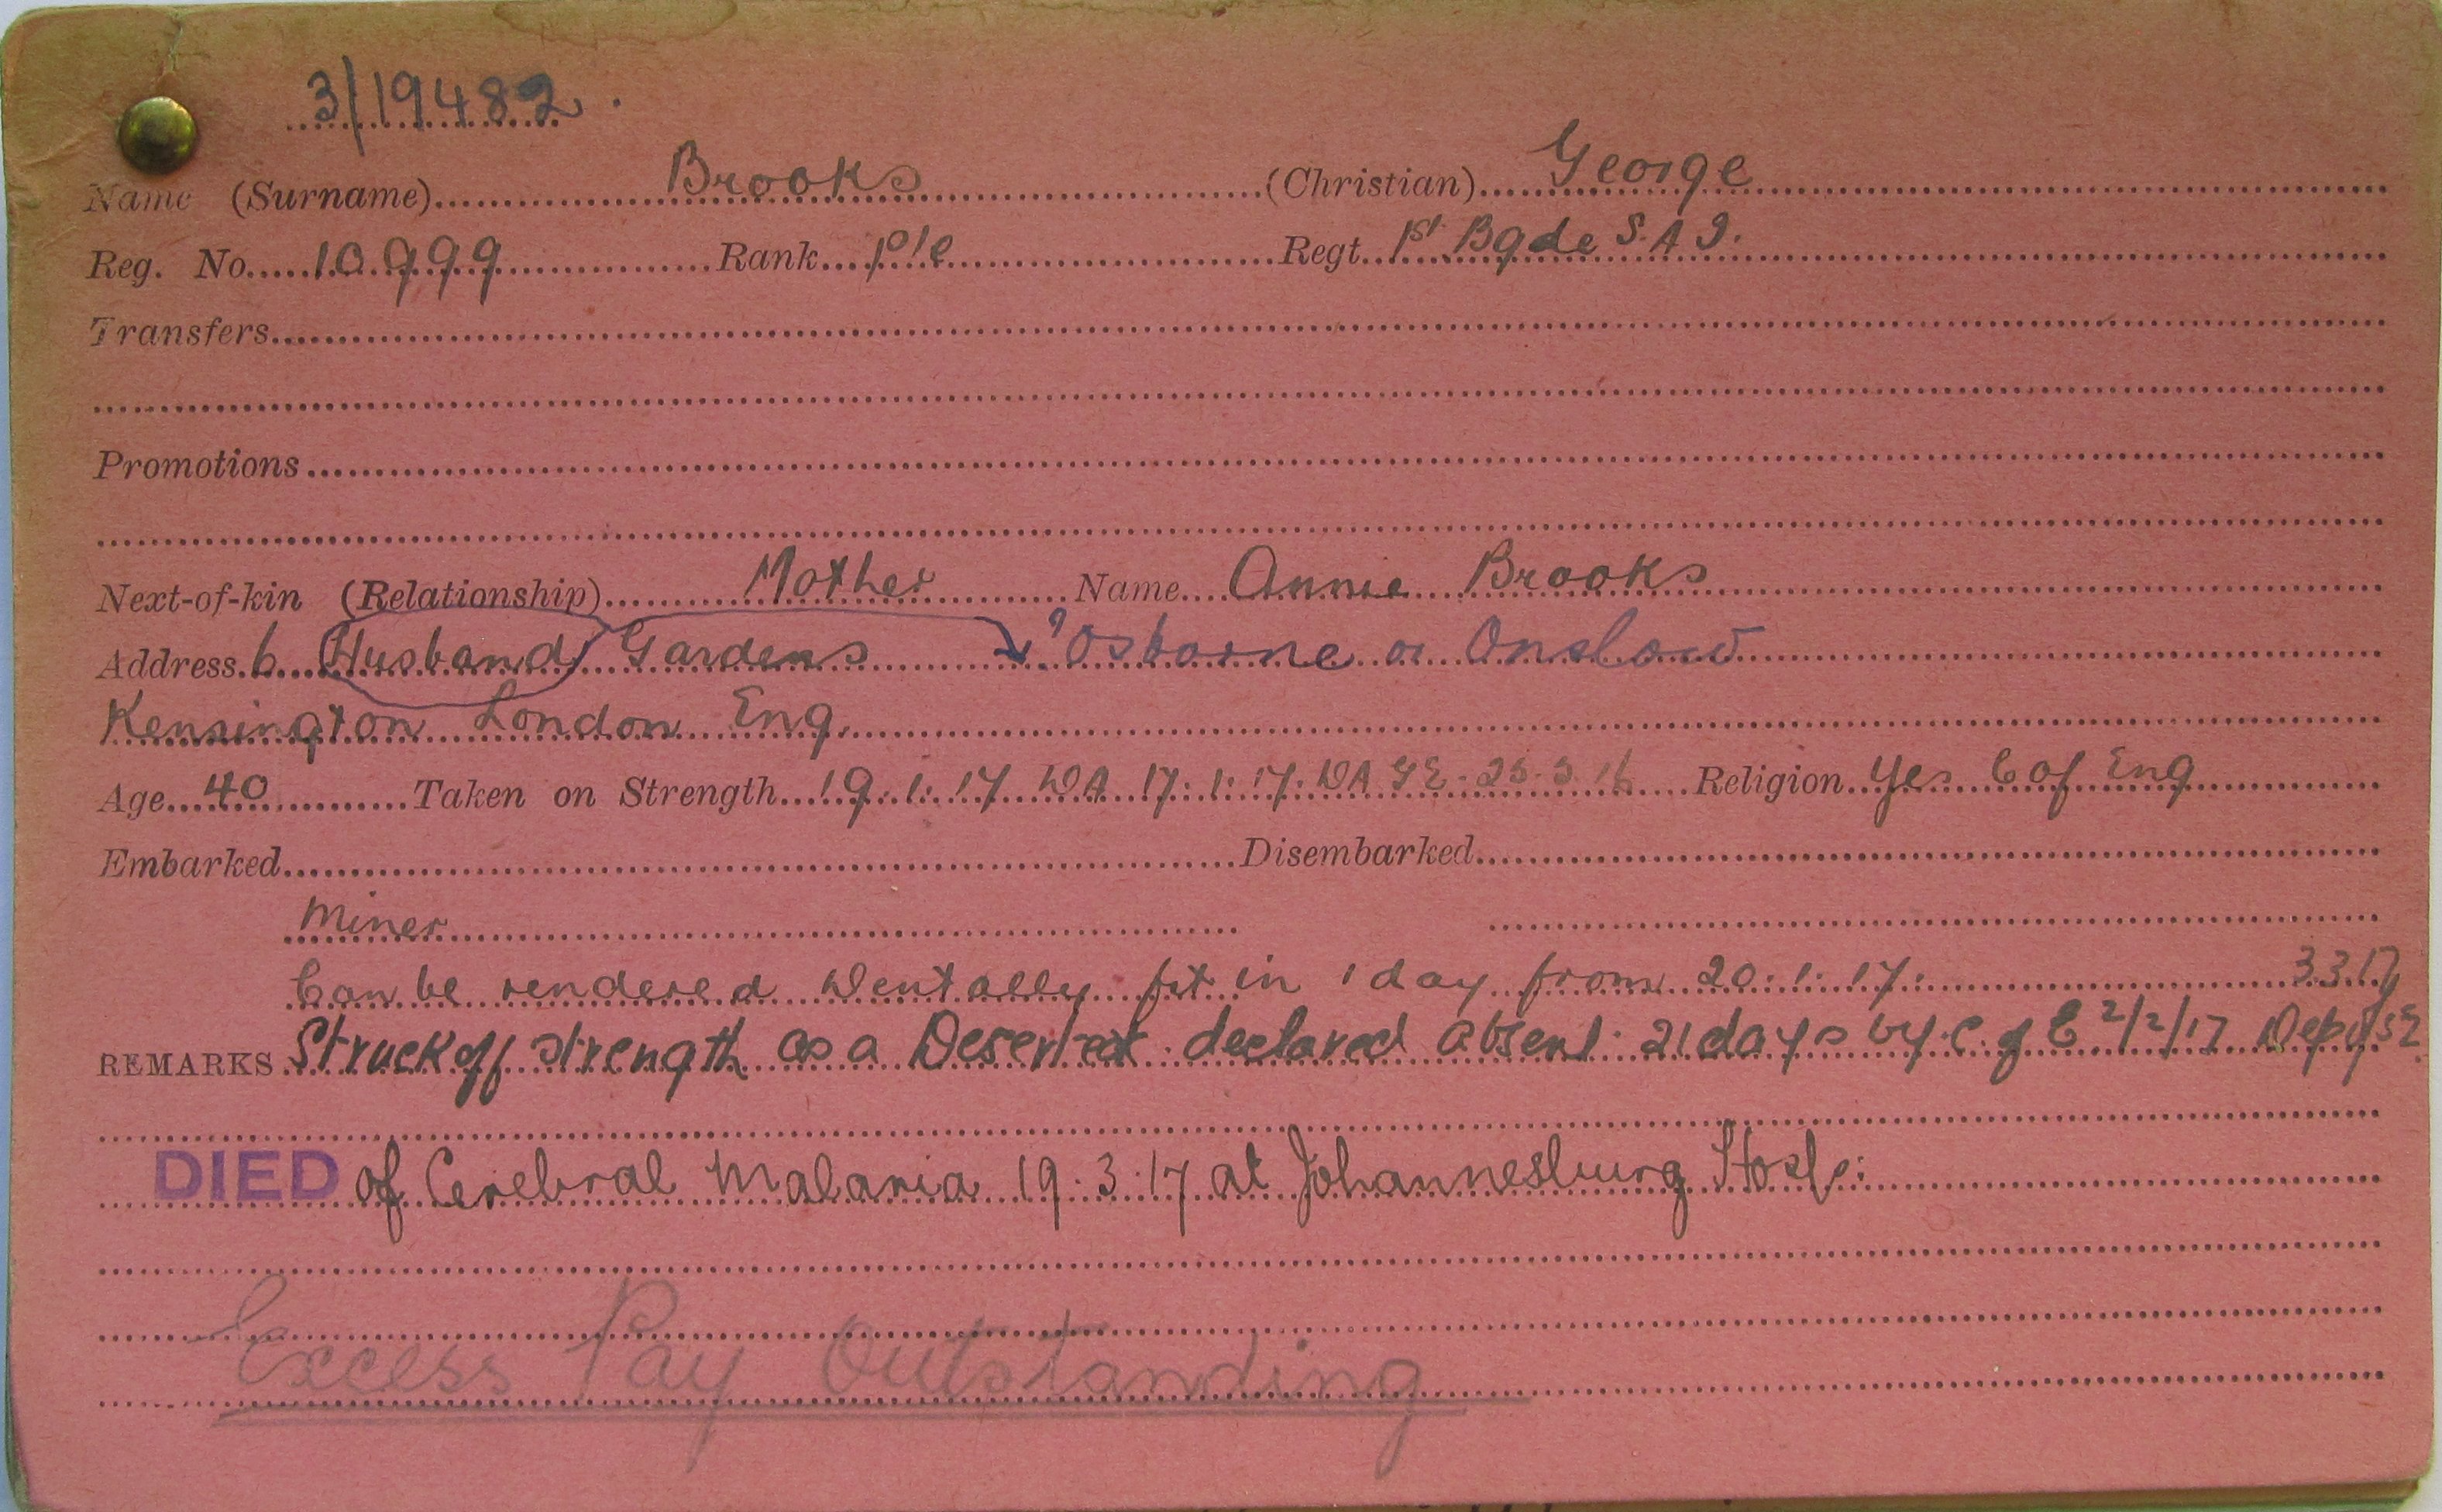 3/19482.
Name (Surname) Brooks (Christian) George
Reg. No. 10999 Rank pte Regt. 1st Bgde S.A I.
Transfers
Promotions
Next-of-kin (Relationship) Mother Name Annie Brooks
Address 6 Husband Gardens ? Osborne or Onslow
Kensington London Eng.
Age 40 Taken on Strength 19.1.17 WA 17.1.17. WA Religion Yes C of Eng
Embarked Disembarked
Miner
Can be rendered Dentally fit in 1 day from 20.1.17. 3.3.17
REMARKS Struck off strength as a Deserter declared absent 21 days by C of E 2/2/17
DIED of Cerebral Malaria 19.3.17 at Johannesburg Hosp:
Excess Pay Outstanding